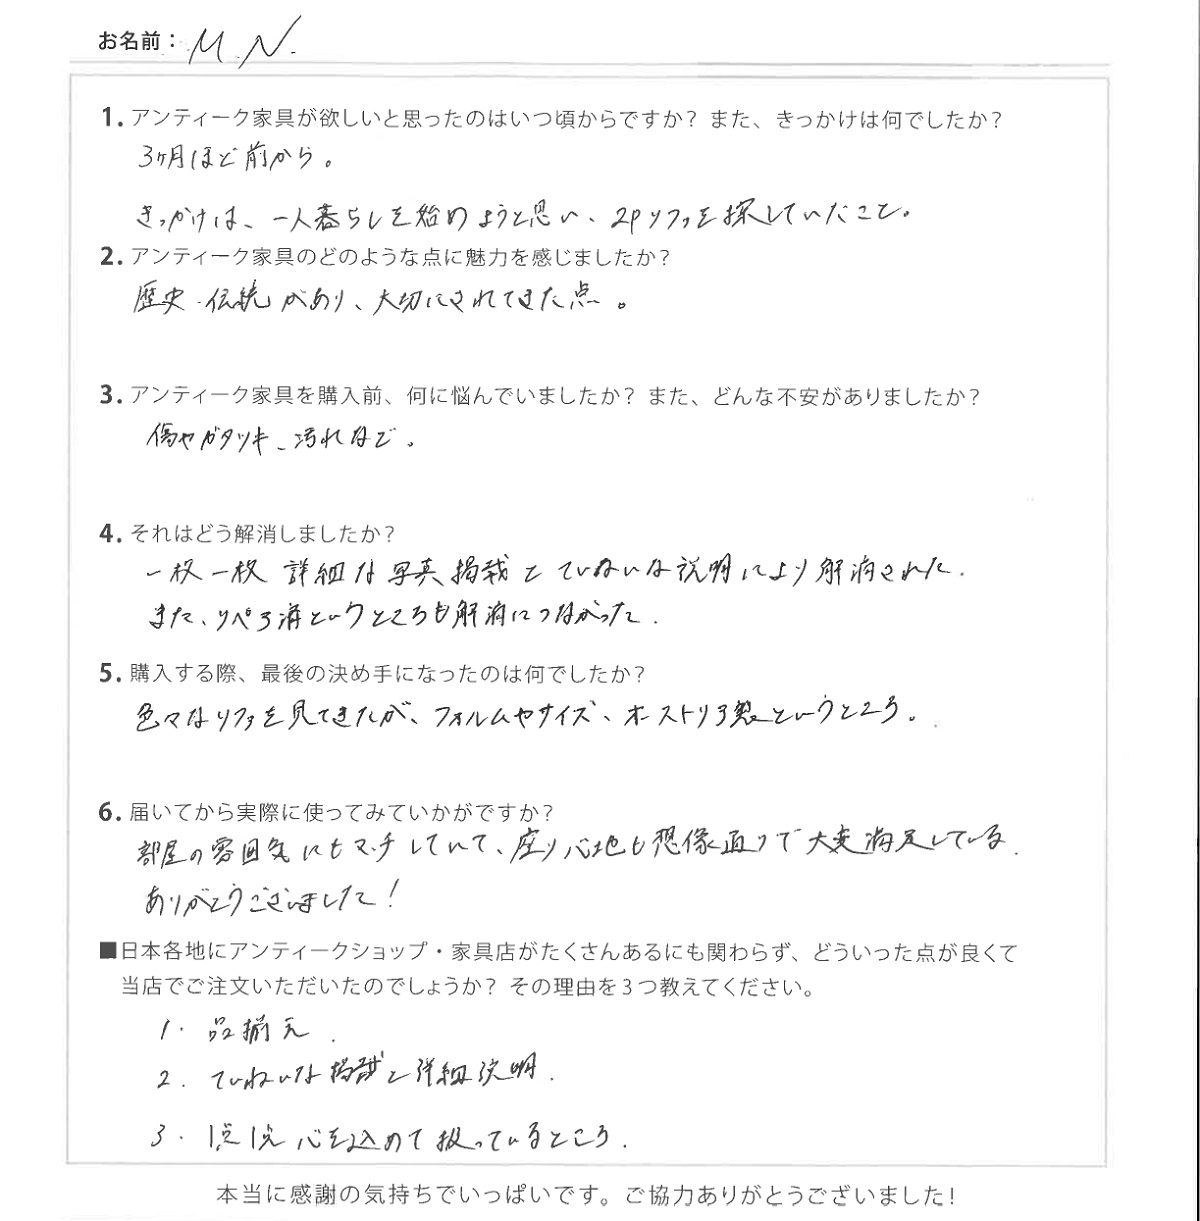 お名前： M.N.
1. アンティーク家具が欲しいと思ったのはいつ頃からですか？ また、きっかけは何でしたか？
3ヶ月ほど前から。
きっかけは、一人暮らしを始めようと思い、2Pソファを探していたこと。
2. アンティーク家具のどのような点に魅力を感じましたか？
歴史・伝統があり、大切にされてきた点。
3. アンティーク家具を購入前、何に悩んでいましたか？ また、どんな不安がありましたか？
傷やガタツキ、汚れなど。
4. それはどう解消しましたか？
一枚一枚詳細な写真掲載とていねいな説明により解消された.
また、リペア済というところも解消につながった.
5. 購入する際、最後の決め手になったのは何でしたか？
色々なソファを見てきたが、フォルムやサイズ、オーストリア製というところ。
6. 届いてから実際に使ってみていかがですか？
部屋の雰囲気にもマッチしていて、座り心地も想像通りで大変満足している.
ありがとうございました！
■日本各地にアンティークショップ・家具店がたくさんあるにも関わらず、どういった点が良くて
当店でご注文いただいたのでしょうか？ その理由を3つ教えてください。
1. 品揃え.
2. ていねいな掲載と詳細説明.
3. 1点1点心を込めて扱っているところ.
本当に感謝の気持ちでいっぱいです。ご協力ありがとうございました！